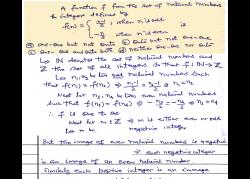 A function f from the set of natural numbers
to integers defined by
f(n) = { n-1/2, when n is odd
-n/2, when n is even is
(a) one-one but not onto (b) onto but not one-one
(c) one-one and onto both (d) neither one-one nor onto
Let IN denotes the set of natural numbers and
Z the set of all integers. Then f: IN → Z
Let n₁, n₂ be two odd natural numbers such
that f(n₁) = f(n₂) ⇒ n₁-1/2 = n₂-1/2 ⇒ n₁ = n₂
Next let n₁, n₂ be two even natural numbers
such that f(n₁) = f(n₂) ⇒ -n₁/2 = -n₂/2 ⇒ n₁ = n₂
∴ f is one to one
Next let n ∈ Z ⇒ n is either even or odd
Let n be negative integer
But the image of even natural number is negative
⇒ each negative integer
is an image of an even natural number
Similarly each positive integer is an image